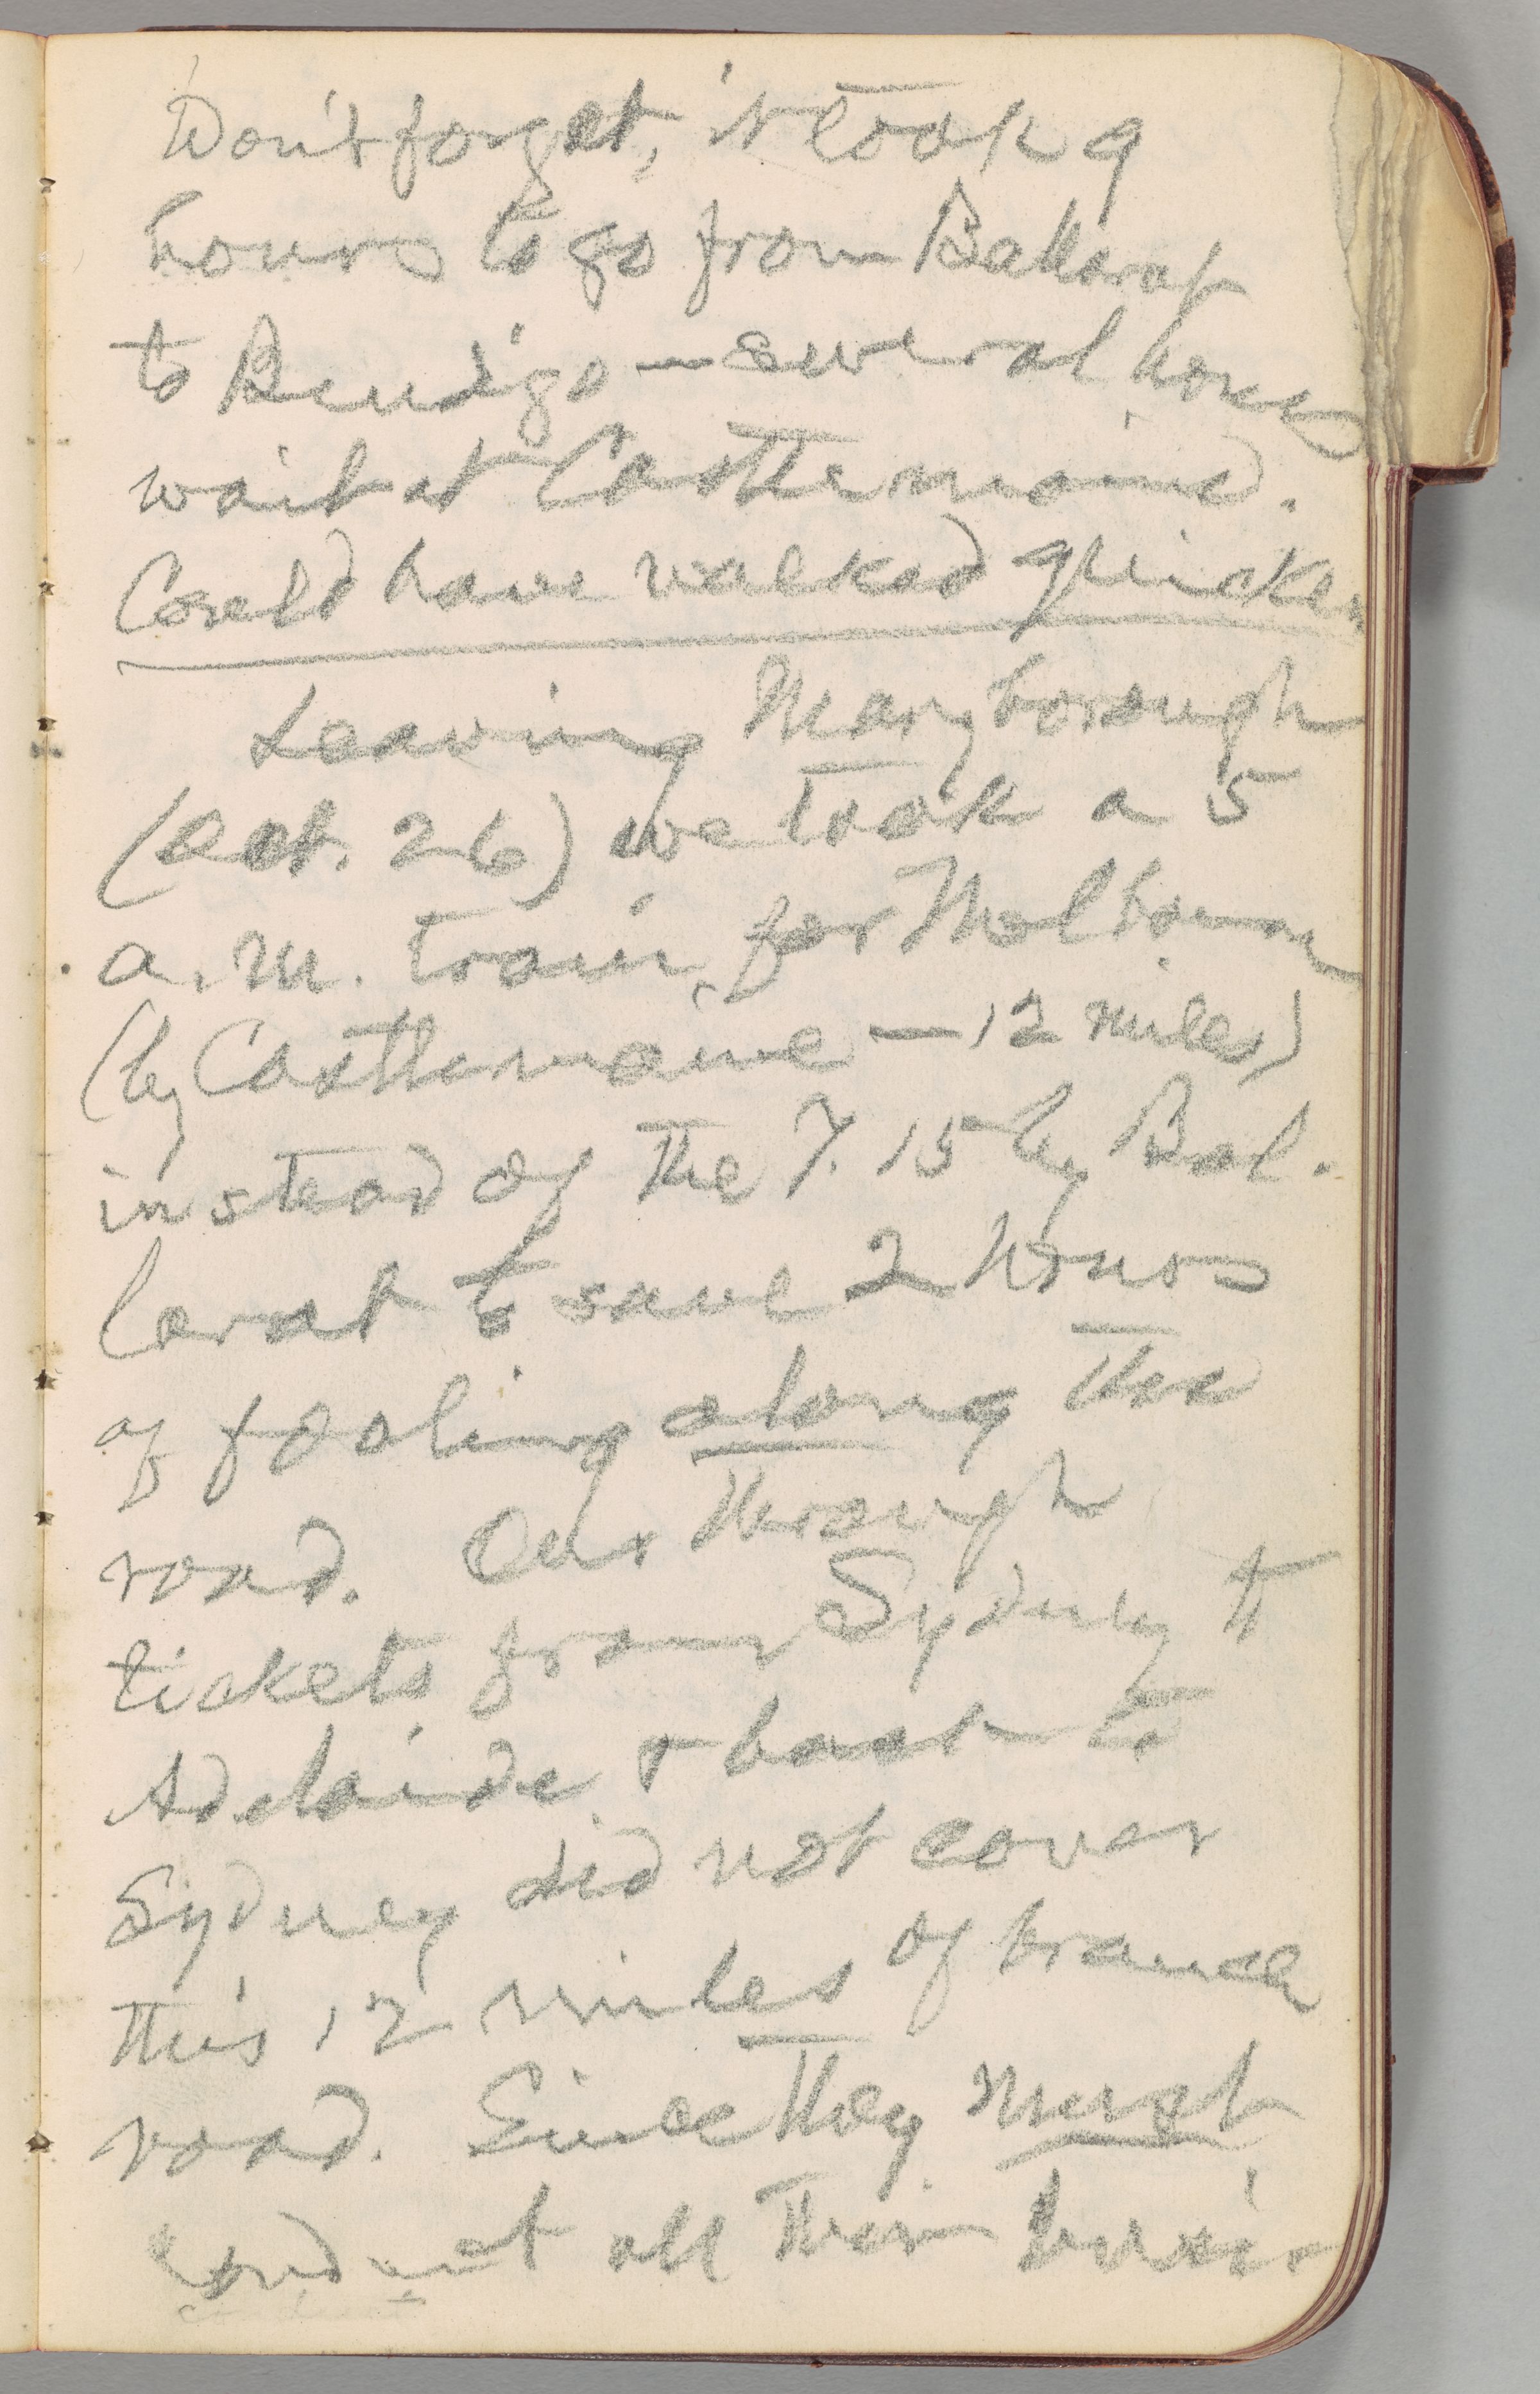 Don't forget, it took 9
hours to go from Ballarat
to Bendigo — several hours
wait at Castlemaine.
Could have walked quicker
Leaving Maryborough
(Oct. 26) we took a 5
a.m. train for Melbourne
(by Castlemaine — 12 miles)
instead of the 7.15 by Bal-
larat to save 2 hours
of fooling along the
road. Our through
tickets from Sydney to
Adelaide & back to
Sydney did not cover
this 12 miles of branch
road. Since they must
conduct all their busi-